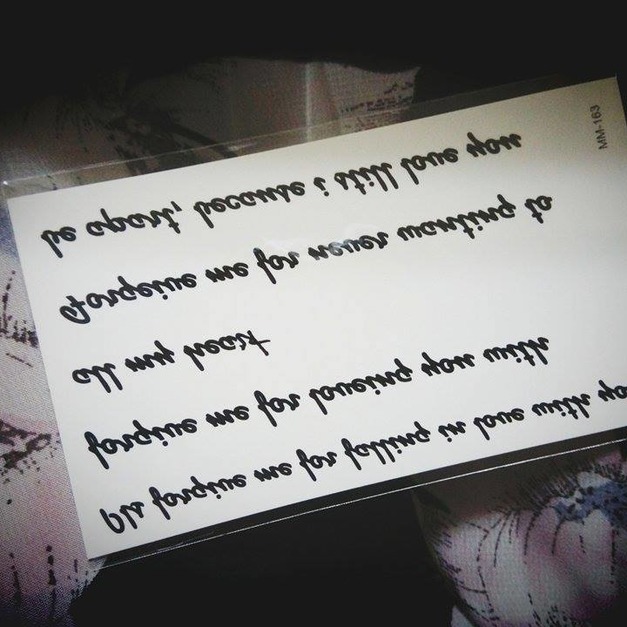 Pls forgive me for falling in love with yo
forgive me for loveing you with
all my heart
Forgeive me for never wanting to
be apart, because i still love you
MM-163